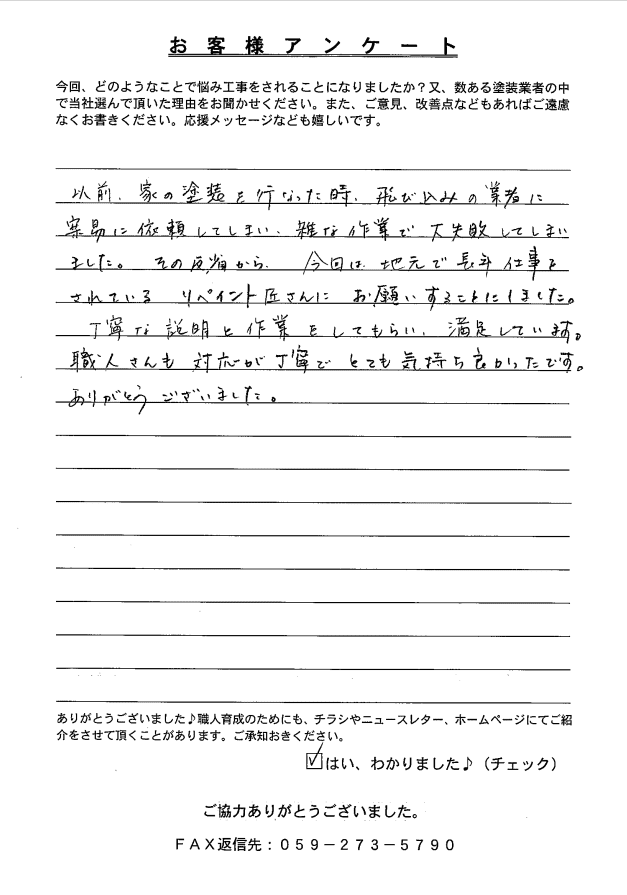 お客様アンケート
今回、どのようなことで悩み工事をされることになりましたか？又、数ある塗装業者の中
で当社選んで頂いた理由をお聞かせください。また、ご意見、改善点などもあればご遠慮
なくお書きください。応援メッセージなども嬉しいです。
以前、家の塗装を行なった時、飛び込みの業者に
容易に依頼してしまい、雑な作業で大失敗してしまい
ました。その反省から、今回は地元で長年仕事を
されているリペイント匠さんにお願いすることにしました。
丁寧な説明と作業をしてもらい、満足しています。
職人さんも対応が丁寧でとても気持ち良かったです。
ありがとうございました。
ありがとうございました♪職人育成のためにも、チラシやニュースレター、ホームページにてご紹
介をさせて頂くことがあります。ご承知おきください。
はい、わかりました♪（チェック）
ご協力ありがとうございました。
ＦＡＸ返信先：０５９－２７３－５７９０